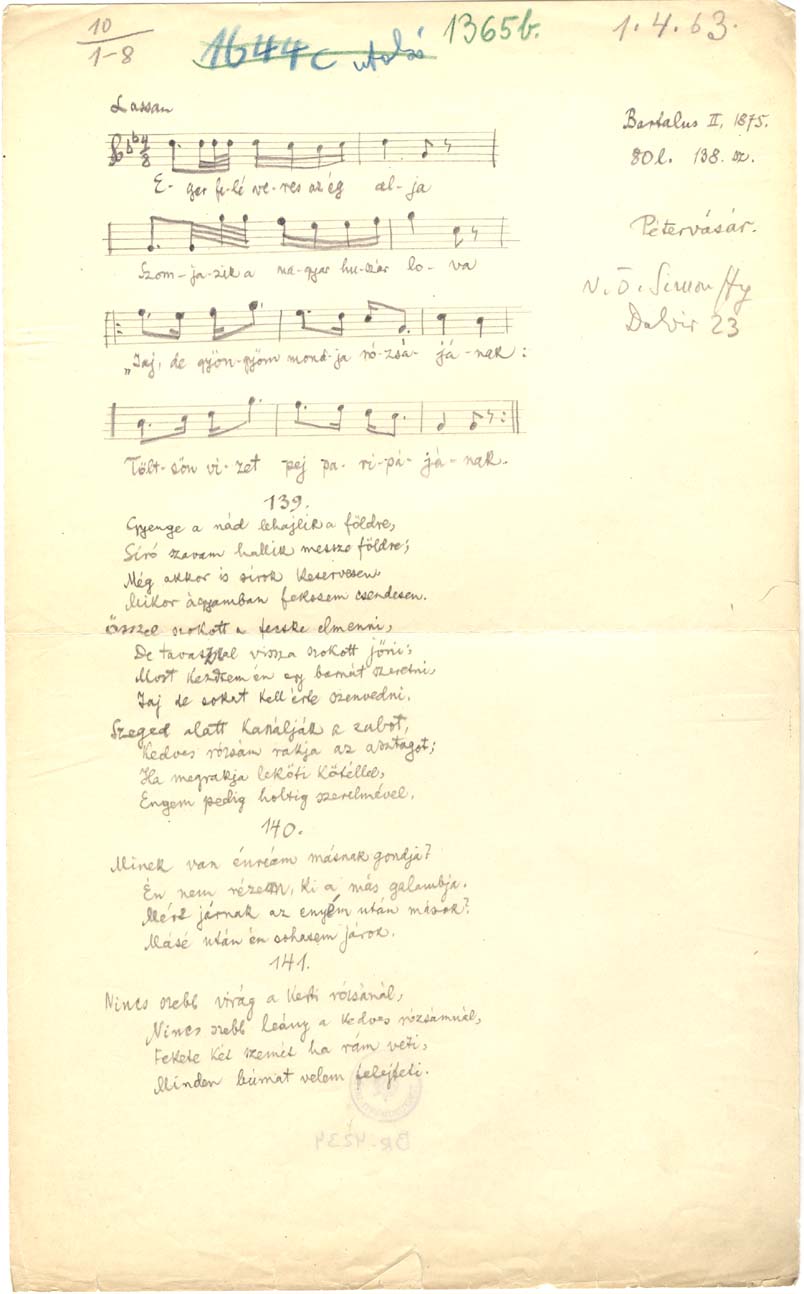 10
1-8
1644c utolsó
1365b.
1.4.63.
Lassan
Bartalus II, 1875.
80 l. 138. sz.
Pétervásár.
V. Ö. Simonffy
Dalvir 23
4/8
E- ger fe-lé ve-res az ég al-ja
Szom-ja-zik a ma-gyar hu-szár lo-va
„Jaj, de gyön-gyöm mond-ja ró-zsá- já-nak:
Tölt-sön vi-zet pej pa-ri-pá-já-nak.
139.
Gyenge a nád lehajlik a földre,
Síró szavam hallik messze földre;
Még akkor is sírok keservesen
Mikor ágyamban fekszem csendesen.
Ősszel szokott a fecske elmenni,
De tavasszal vissza szokott jőni;
Most kezdtem én egy barnát szeretni,
Jaj de sokat kell érte szenvedni.
Szeged alatt kaszálják a zabot,
Kedves rózsám rakja az asztagot;
Ha megrakja leköti kötéllel,
Engem pedig holtig szerelmével.
140.
Minek van énreám másnak gondja?
Én nem nézem, ki a más galambja.
Mért járnak az enyém után mások?
Másé után én sohasem járok.
141.
Nincs szebb virág a kerti rózsánál,
Nincs szebb leány a kedves rózsámnál,
Fekete két szemét ha rám veti,
Minden búmat velem felejteti.
BR-4234